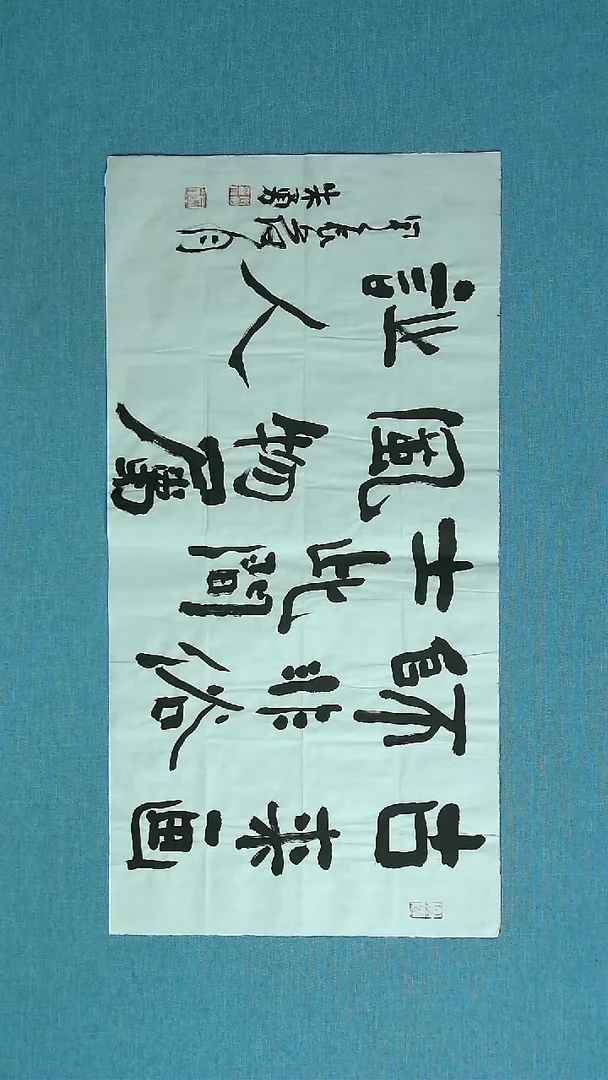 古来画
師非俗
士此間
風物屬
詩人
朱勇